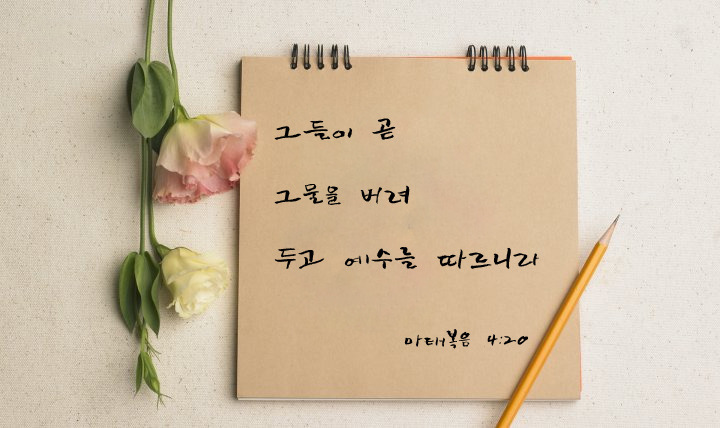 그들이 곧
그물을 버려
두고 예수를 따르니라
마태복음 4:20